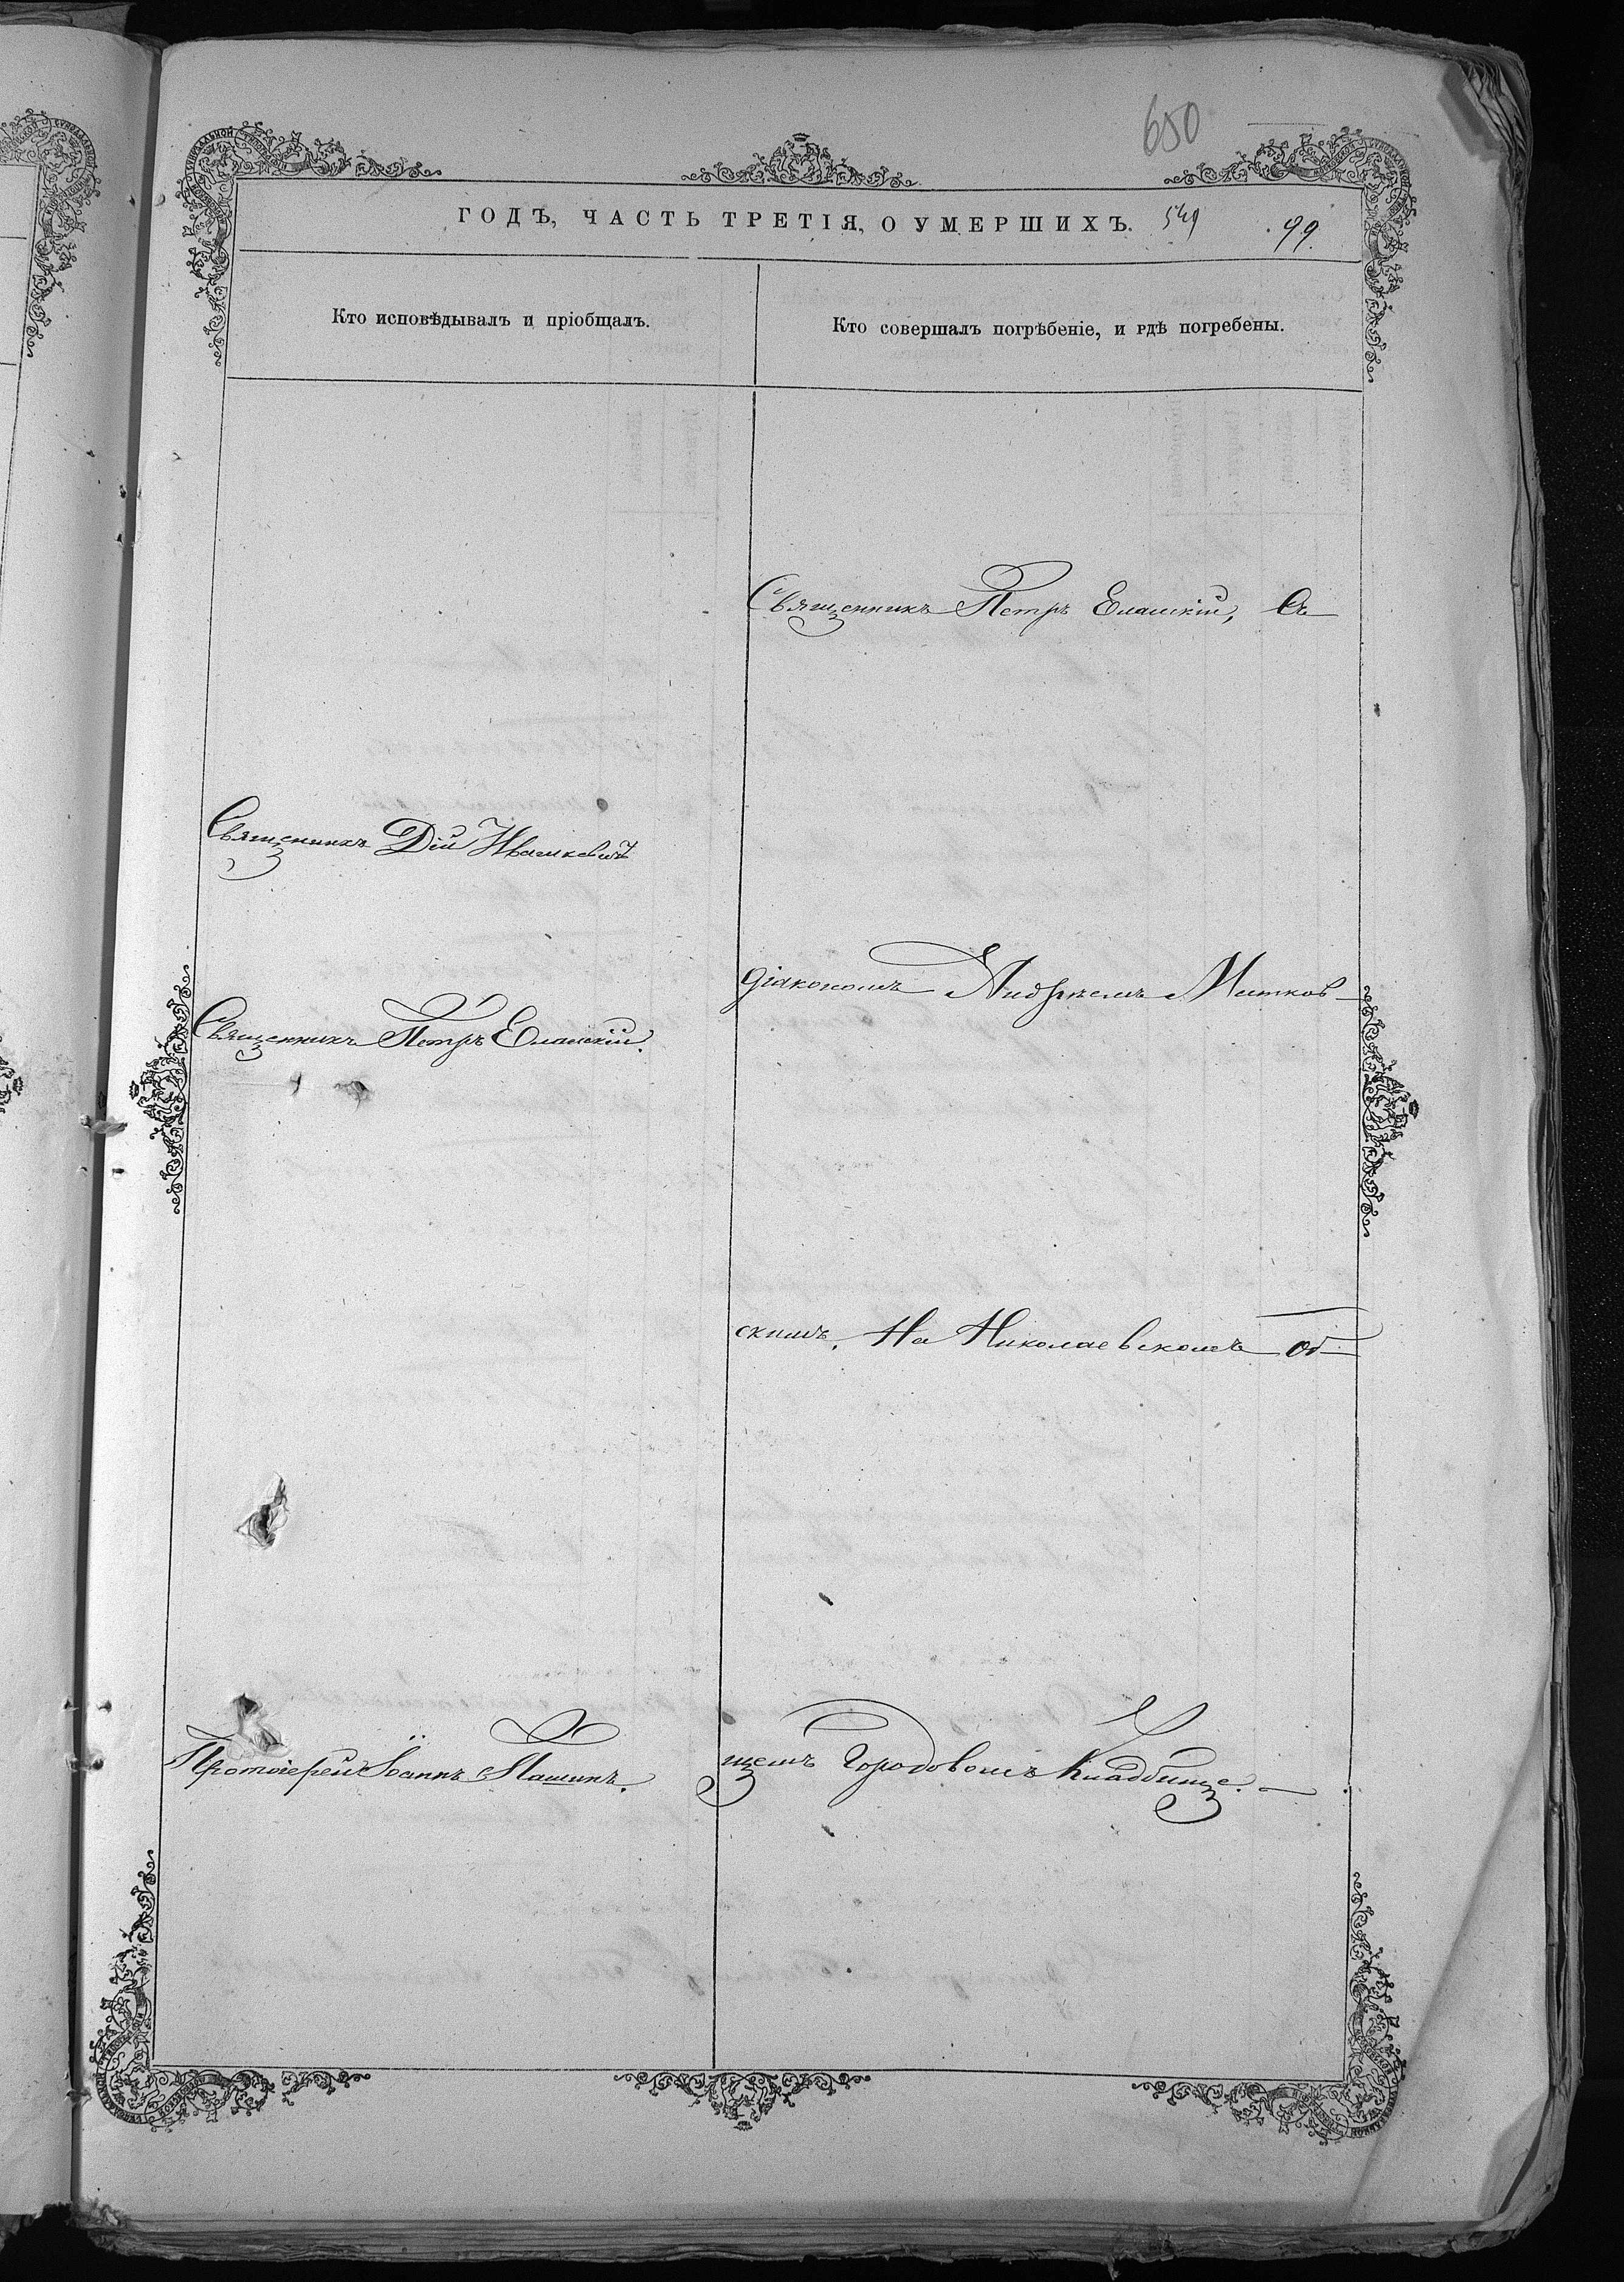 650
ГОДЪ, ЧАСТЬ ТРЕТІЯ, О УМЕРШИХЪ. 549 99.
Кто исповѣдывалъ и пріобщалъ.
Кто совершалъ погрѣбеніе, и гдѣ погребены.
Священникъ Дій Ивашкевичъ
Священникъ Петръ Еланскій.
Протоіерей Іоаннъ Пашинъ.
Священникъ Петръ Еланскій, Съ
діакономъ Андреемъ Митков-
скимъ. На Николаевскомъ Об-
щемъ Городовомъ Кладбище.